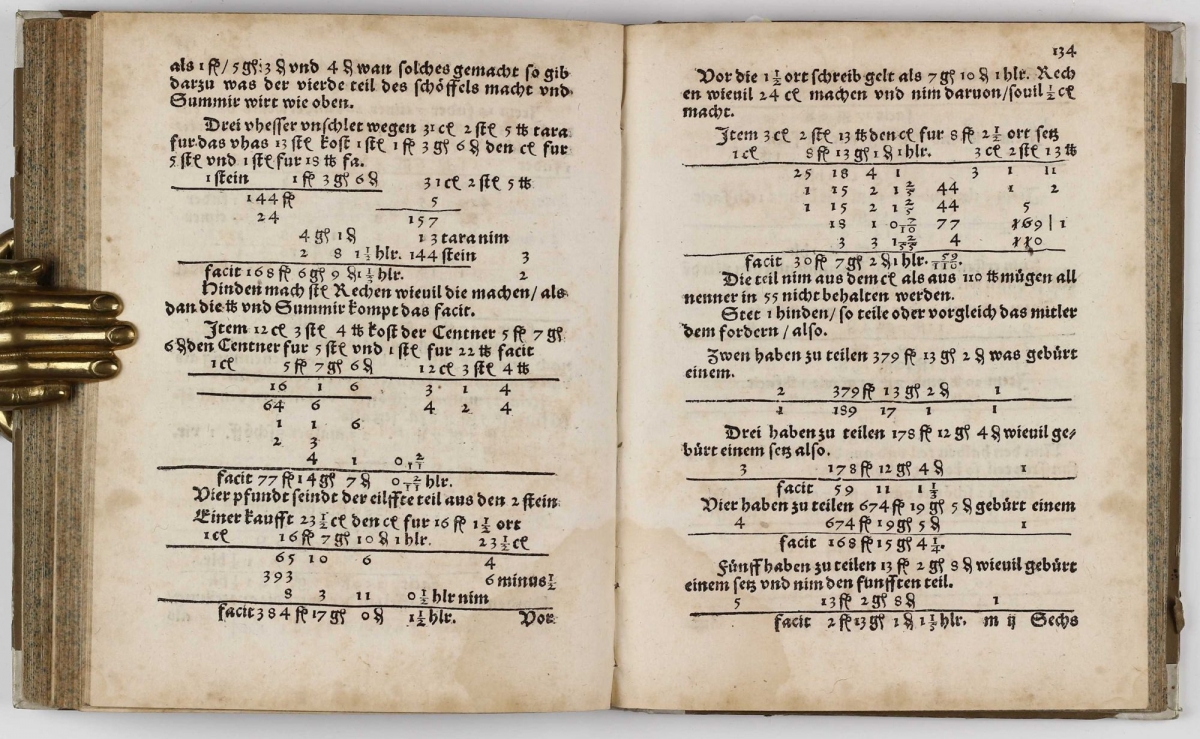 als 1 fl/ 5 gl: 3 ₰ vnd 4 ₰ wan solches gemacht so gib
darzu was der vierde teil des schöffels macht vnd
Summir wirt wie oben.
Drei vhesser vnschlet wegen 31 cl 2 stl 5 ℔ tara
fur das vhas 13 stl kost 1 stl 1 fl 3 gl 6 ₰ den cl fur
5 stl vnd 1 stl fur 18 ℔ fa.
1 stein 1 fl 3 gl 6 ₰ 31 cl 2 stl 5 ℔
144 fl 5
24 157
4 gl 1 ₰ 13 tara nim
2 8 1 1/2 hlr. 144 stein 3
facit 168 fl 6 gl 9 ₰ 1 1/2 hlr. 2
Hinden mach stl Rechen wieuil die machen/ als
dan die ℔ vnd Summir kompt das facit.
Item 12 cl 3 stl 4 ℔ kost der Centner 5 fl 7 gl
6 ₰ den Centner fur 5 stl vnd 1 stl fur 22 ℔ facit
1 cl 5 fl 7 gl 6 ₰ 12 cl 3 stl 4 ℔
16 1 6 3 1 4
64 6 4 2 4
1 1 6
2 3
4 1 0 2/11
facit 77 fl 14 gl 7 ₰ 0 2/11 hlr.
Vier pfundt seindt der eilffte teil aus den 2 stein
Einer kaufft 23 1/2 cl den cl fur 16 fl 1 1/2 ort
1 cl 16 fl 7 gl 10 ₰ 1 hlr. 23 1/2 cl
65 10 6 4
393 6 minus 1/2
8 3 11 0 1/2 hlr nim
facit 384 fl 17 gl 0 ₰ 1 1/2 hlr. Vor
134
Vor die 1 1/2 ort schreib gelt als 7 gl 10 ₰ 1 hlr. Rech
en wieuil 24 cl machen vnd nim daruon/ souil 1/2 cl
macht.
Item 3 cl 2 stl 13 ℔ den cl fur 8 fl 2 1/2 ort setz
1 cl 8 fl 13 gl 1 ₰ 1 hlr. 3 cl 2 stl 13 ℔
25 18 4 1 3 1 11
1 15 2 1 2/5 44 1 2
1 15 2 1 2/5 44 5
18 1 0 7/10 77 169 | 1
3 3 1 2/55 4 110
facit 30 fl 7 gl 2 ₰ 1 hlr. 59/110.
Die teil nim aus dem cl als aus 110 ℔ mügen all
nenner in 55 nicht behalten werden.
Stet 1 hinden/ so teile oder vorgleich das mitler
dem fordern/ also.
Zwen haben zu teilen 379 fl 13 gl 2 ₰ was gebürt
einem.
2 379 fl 13 gl 2 ₰ 1
1 189 17 1 1
Drei haben zu teilen 178 fl 12 gl 4 ₰ wieuil ge-
bürt einem setz also.
3 178 fl 12 gl 4 ₰ 1
facit 59 11 1 1/3
Vier haben zu teilen 674 fl 19 gl 5 ₰ gebürt einem
4 674 fl 19 gl 5 ₰ 1
facit 168 fl 15 gl 4 1/4.
Fünff haben zu teilen 13 fl 2 gl 8 ₰ wieuil gebürt
einem setz vnd nim den funfften teil.
5 13 fl 2 gl 8 ₰ 1
facit 2 fl 13 gl 1 ₰ 1 1/5 hlr. m ij Sechs